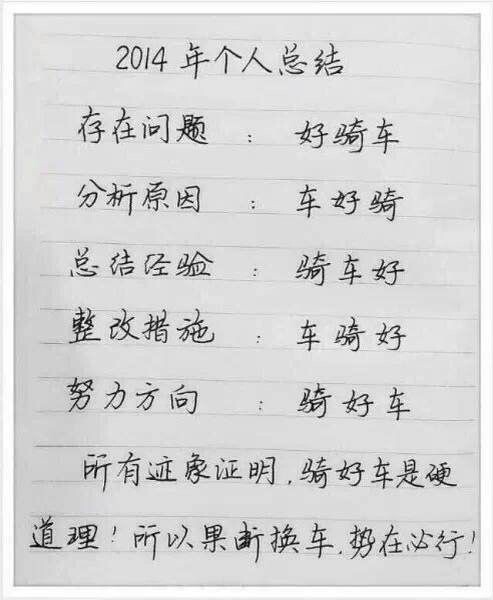 2014年个人总结
存在问题 : 好骑车
分析原因 : 车好骑
总结经验 : 骑车好
整改措施 : 车骑好
努力方向 : 骑好车
所有迹象证明,骑好车是硬
道理!所以果断换车,势在必行!